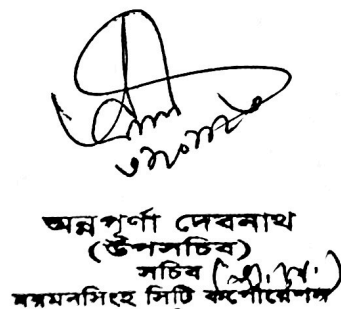 অন্নপূর্ণা দেবনাথ
(উপসচিব)
সচিব
ময়মনসিংহ সিটি কর্পোরেশন